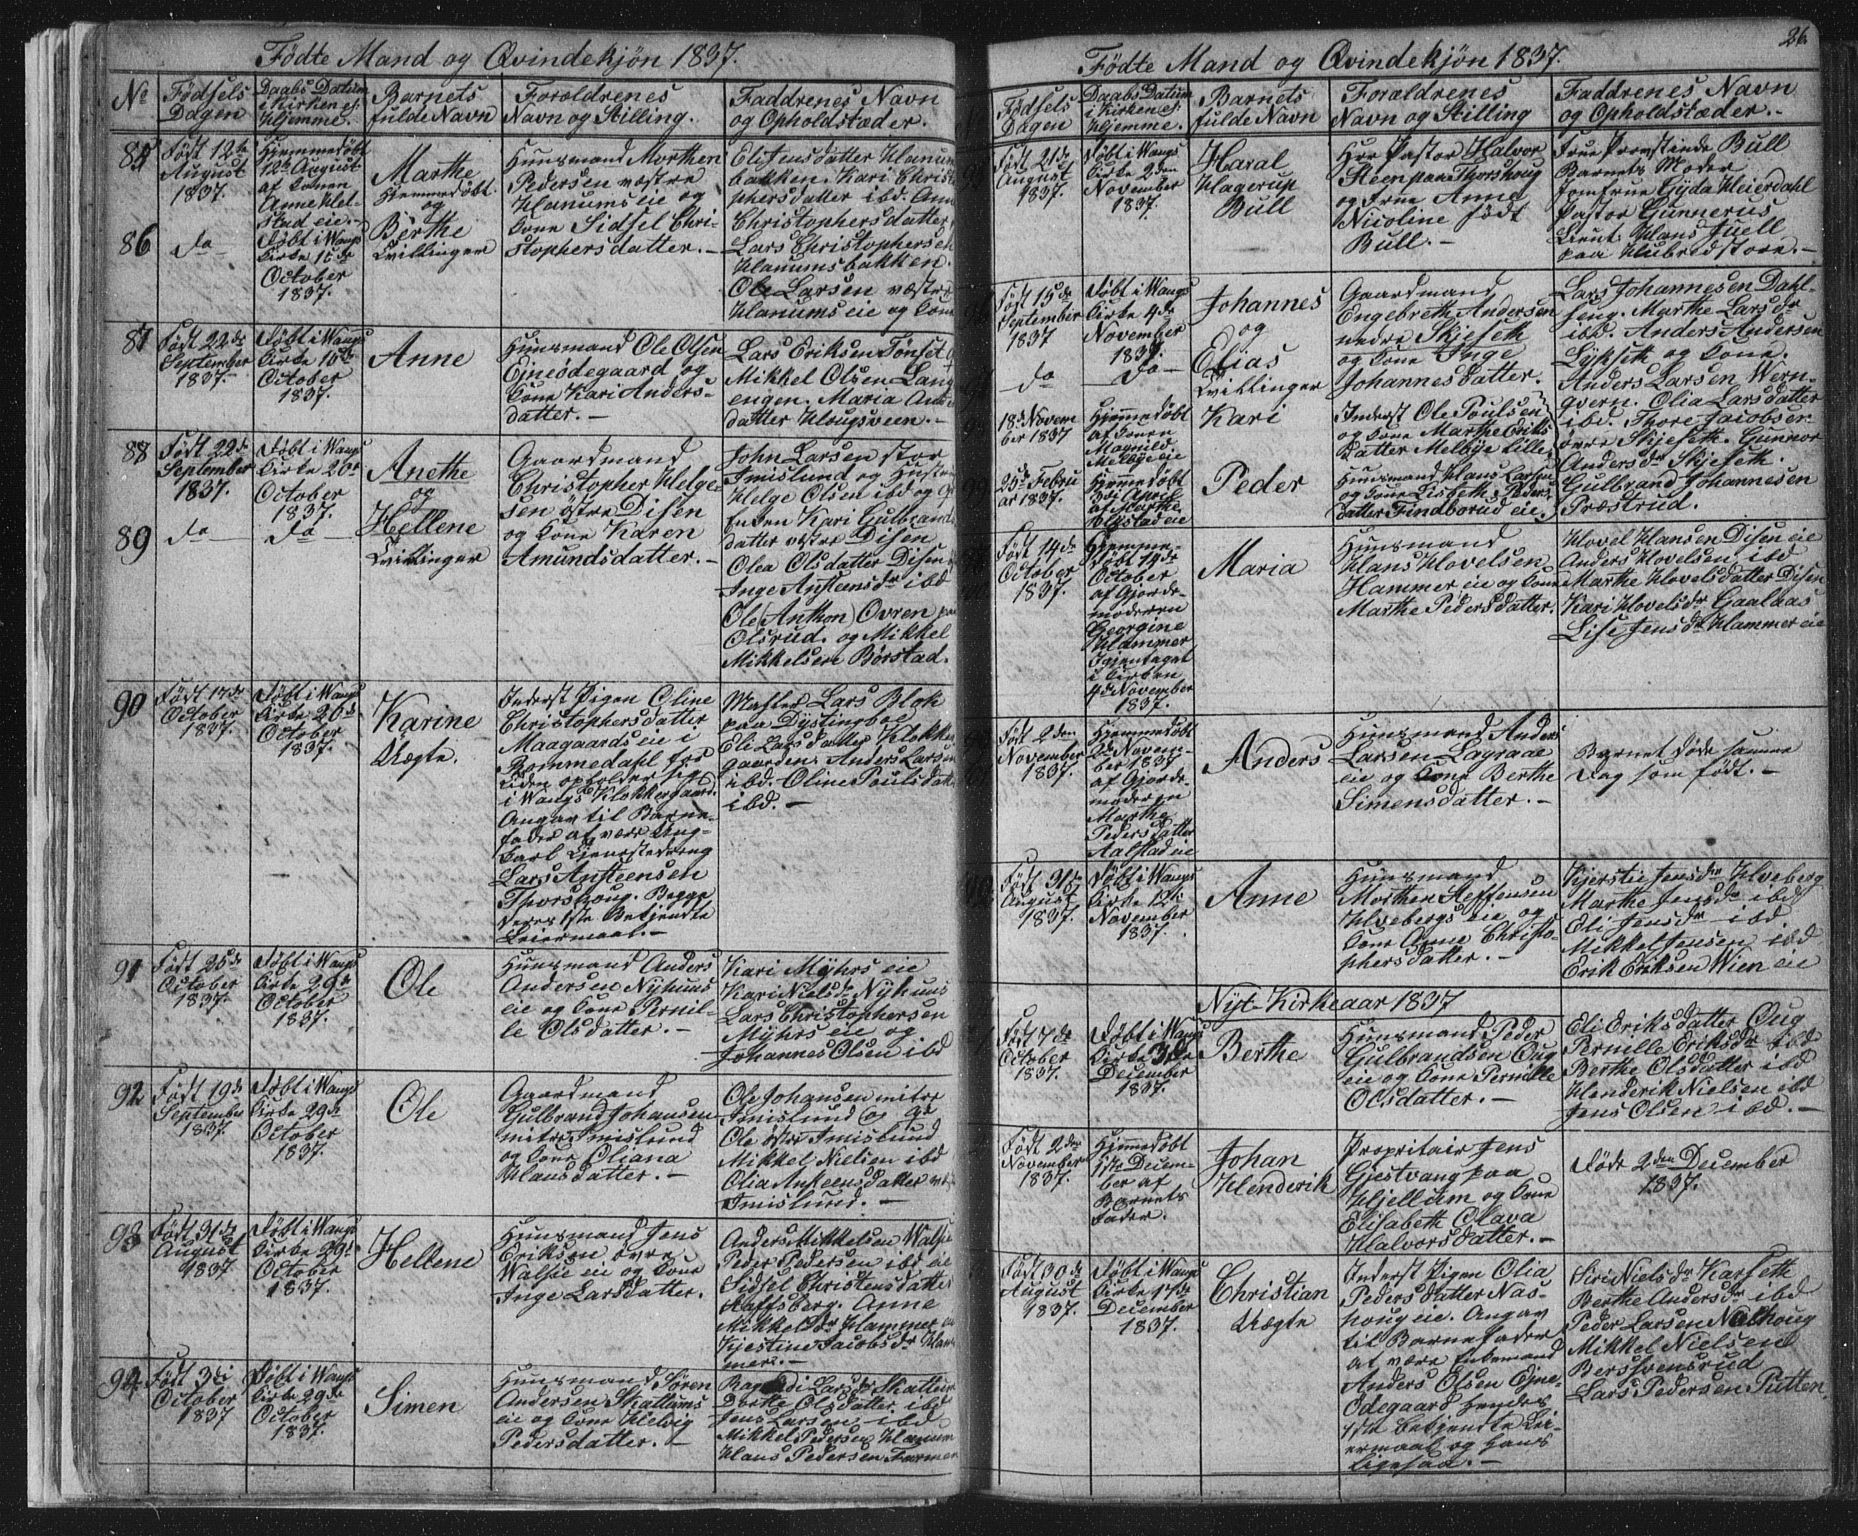 Fødte Mand og Qvindekjøn 1837.
No
Fødsels
Dagen
Daabs Datum
i Kirken el.
Hjemme.
Barnets
fulde Navn
Forældrenes
Navn og Stilling.
Faddrenes Navn
og Opholdstæder.
85
Født 12te
August
1837.
Hjemmedøbt
12te August
af Konen
Anne Hel-
stad eie.
Marthe
Hjemmedøbt
og
Huusmand Morthen
Pedersen væstre
Hanums eie og
Kone Sidsel Chri-
stophersdatter.
Eli Jensdatter Hanum
bakken. Kari Christ
phersdatter ibd. Ann
Christophersdatter
Lars Christophersen
Hanumsbakken.
Ole Larsen væstre
Hanums eie og Kone
86
da
Døbt i Wangs
Kirke 15de
October
1837.
Berthe
Tvillinger
87
Født 22de
September
1837.
Døbt i Wangs
Kirke 15de
October
1837.
Anne
Huusmand Ole Olsen
Ejneødegaard og
Kone Kari Anders-
datter.
Lars Eriksen Tønset
Mikkel Olsen Lang
engen. Maria Anders
datter Hougsveen.
88
Født 22de
September
1837.
Døbt i Wangs
Kirke 20de
October
1837.
Anethe
og
Gaardmand
Christopher Helge-
sen østre Disen
og Kone Karen
Amundsdatter.
John Larsen stor
Imislund og Hustru
Helge Olsen ibd og
Enken Kari Gulbrands
datter væster Disen
Olea Olsdatter Disen
Inge Anstensdr ibd
Ole (Anthon) Ovren paa
Olsrud. og Mikkel
Mikkelsen Børstad.
89
da
da
Hellene
Tvillinger
90
Født 17de
October
1837.
Døbt i Wangs
Kirke 26de
October
1837.
Karine
Uægte.
Inderst Pigen Oline
Christophersdatter
Maagaards eie i
Rommedahl for
tiden opholder sig
i Wangs Klokkergaard.
Angav til Barne-
fader at være Ung-
karl Tjenestedreng
Lars Ansteensen
Thorshoug. Begge
deres 1ste Betjendte
Leiermaal.
Master Lars Blok
paa Dystingboe
Eli Larsdatter Klokker
gaarden. Anders Larsen
ibd. Oline Poulsdatter
ibd.
91
Født 25de
October
1837.
Døbt i Wangs
Kirke 29de
October
1837.
Ole
Huusmand Anders
Andersen Nyhuus
eie og Kone Pernil-
le Olsdatter.
Kari Myhrs eie
Kari Nielsdr Nyhuus
Lars Christophersen
Myhrs eie og
Johannes Olsen ibd
92
Født 19de
September
1837.
Døbt i Wangs
Kirke 29de
October
1837.
Ole
Gaardmand
Gulbrand Johansen
mitre Imislund
og Kone Oliana
Hansdatter.
Ole Johansen mitre
Imislund og
Ole østre Imislund
Mikkel Nielsen ibd
Olia Ansteensdatter
Imislund.
93
Født 31te
August
1837
Døbt i Wangs
Kirke 29de
October
1837.
Hellene
Huusmand Jens
Eriksen øvre
Walsie eie og Kone
Inge Larsdatter.
Anders Mikkelsen Walsie
Peder Pedersen ibd eie
Sidsel Christensdatter
Kaffsberg. Anne
Mikkelsdr Hammer
Kjestine Jacobsdr Ham
mer.
94
Født 3die
October
1837
Døbt i Wangs
Kirke 29de
October
1837.
Simen
Huusmand Søren
Andersen Skattums
eie og Kone Helvig
Pedersdatter.
Larsdr Skattum
Dorthe Olsdatter ibd
Jens Larsen ibd
Mikkel Pedersen Hanum
Hans Pedersen Farmen
26
Fødte Mand og Qvindekjøn 1837.
Fødsels
Dagen
Daabs Datum
i Kirken el.
Hjemme.
Barnets
fulde Navn
Forældrenes
Navn og Stilling
Faddrenes Navn
og Opholdstæder.
Født 21de
August
1837.
Døbt i Wangs
Kirke 2den
November
1837.
Haral
Hagerup
Bull
Herr Pastor Halvor
Steen paa Thorshoug
og Frue Anne
Nicoline født
Bull.
Frue Provstinde Bull
Barnets Moder
Jomfrue Gyda Heierdahl
Pastor Gunnerus
Lieut. Hans Juell
paa Hubred store.
Født 15de
September
1837
Døbt i Wangs
Kirke 4de
November
1837.
Johannes
og
Gaardmand
Engebreth Andersen
nedre Skjeseth
og Kone Inge
Johannesdatter.
Lars Johannesen Dahl-
seng. Marthe Larsdr
ibd. Anders Andersen
Lykseth og Kone.
Anders Larsen Wern-
qvern. Olia Larsdatter
ibd. Thore Jacobsen
øvre Skjeseth. Gunnor
Andersdr Skjeseth.
Gulbrand Johannesen
Præstrud.
da
da
Elias
Tvillinger
18de Novem
ber 1837
Hjemmedøbt
af Konen
Magnild
Melbye eie
Kari
Inderst Ole Poulsen
og Kone Marthe Eriks
datter Melbye lille
25de Febru
ar 1837.
Hjemmedøbt
3die April
af Marthe
Alstad eie
Peder
Huusmand Hans Larsen
og Kone Lisbeth Peders
datter Findborud eie.
Født 14de
October
1837.
Hjemme-
døbt 14de
October
af Gjorde-
moderen
Georgine
Hammer
Igjentaget
i Kirken
4de November
1837.
Maria
Huusmand
Hans Hovelsen
Hammer eie og Kone
Marthe Pedersdatter.
Hovel Hansen Disen eie
Anders Hovelsen ibd
Marthe Hovelsdatter Disen
Kari Hovelsdr Gaalaas
Lise Jensdr Hammer eie
Født 2den
November
1837.
Hjemmedøbt
2de Novem-
ber 1837
af Gjorde-
moderen
Marthe
Pedersdatter
Aalstad eie
Anders
Huusmand Anders
Larsen Lagraae
eie og Kone Berthe
Simensdatter.
Barnet døde samme
Dag som født.
Født 31te
August
1837.
Døbt i Wangs
Kirke 12te
November
1837.
Anne
Huusmand
Morthen Steffensen
Hvebergs eie og
Kone Anne Christo-
phersdatter.
Kjerstie Jensdr Hveberg
Marthe Jensdr ibd
Eli Jensdr ibd
Mikkel Jensen ibd
Erik Eriksen Wien eie
Nyt Kirkeaar 1837
Født 7de
October
1837.
Døbt i Wangs
Kirke 3die
December
1837.
Berthe
Huusmand Peder
Gulbrandsen Oug
eie og Kone Pernille
Olsdatter.
Eli Eriksdatter Oug
Pernille Eriksdr ibd
Berthe Olsdatter ibd
Henderik Nielsen ibd
Jens Olsen ibd.
Født 2den
November
1837.
Hjemmedøbt
1ste Decem-
ber af
Barnets
Fader.
Johan
Henderik
Propritair Jens
Gjestvang paa
Hjellum og Kone
Elisabeth Olava
Halvorsdatter.
Døde 2den December
1837.
Født 30de
August
1837.
Døbt i Wangs
Kirke 17de
December
1837.
Christian
Uægte
Inderst Pigen Olia
Pedersdatter Nas-
houg eie. Angav
til Barnefader
at være Enkemand
Anders Olsen Ejne-
Odegaard hendes
1ste betjendte Lei-
ermaal og hans
ligesaa.
Siri Nielsdr Karseth
Berthe Andersdr ibd
Peder Larsen Nashoug
Mikkel Nielsen
Bersvensrud
Lars Pedersen Putten